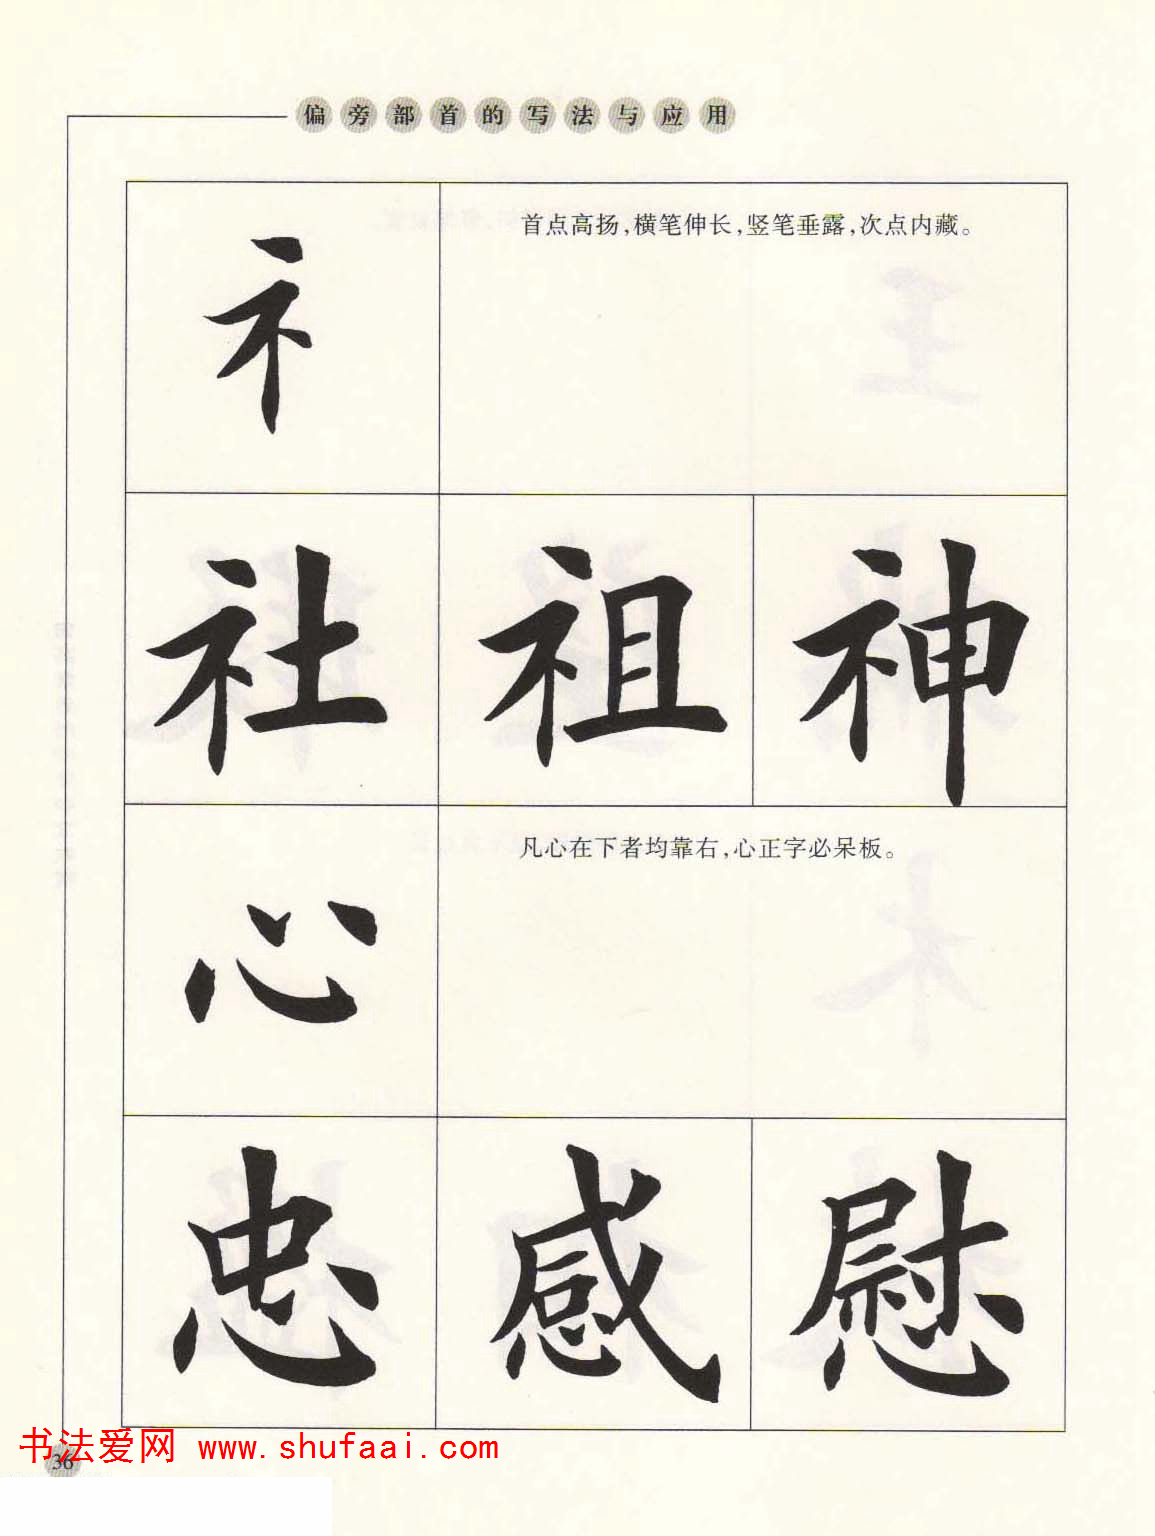 偏旁部首的写法与应用
礻
首点高扬,横笔伸长,竖笔垂露,次点内藏。
社 祖 神
心
凡心在下者均靠右,心正字必呆板。
忠 感 慰
书法爱网 www.shufaai.com
36